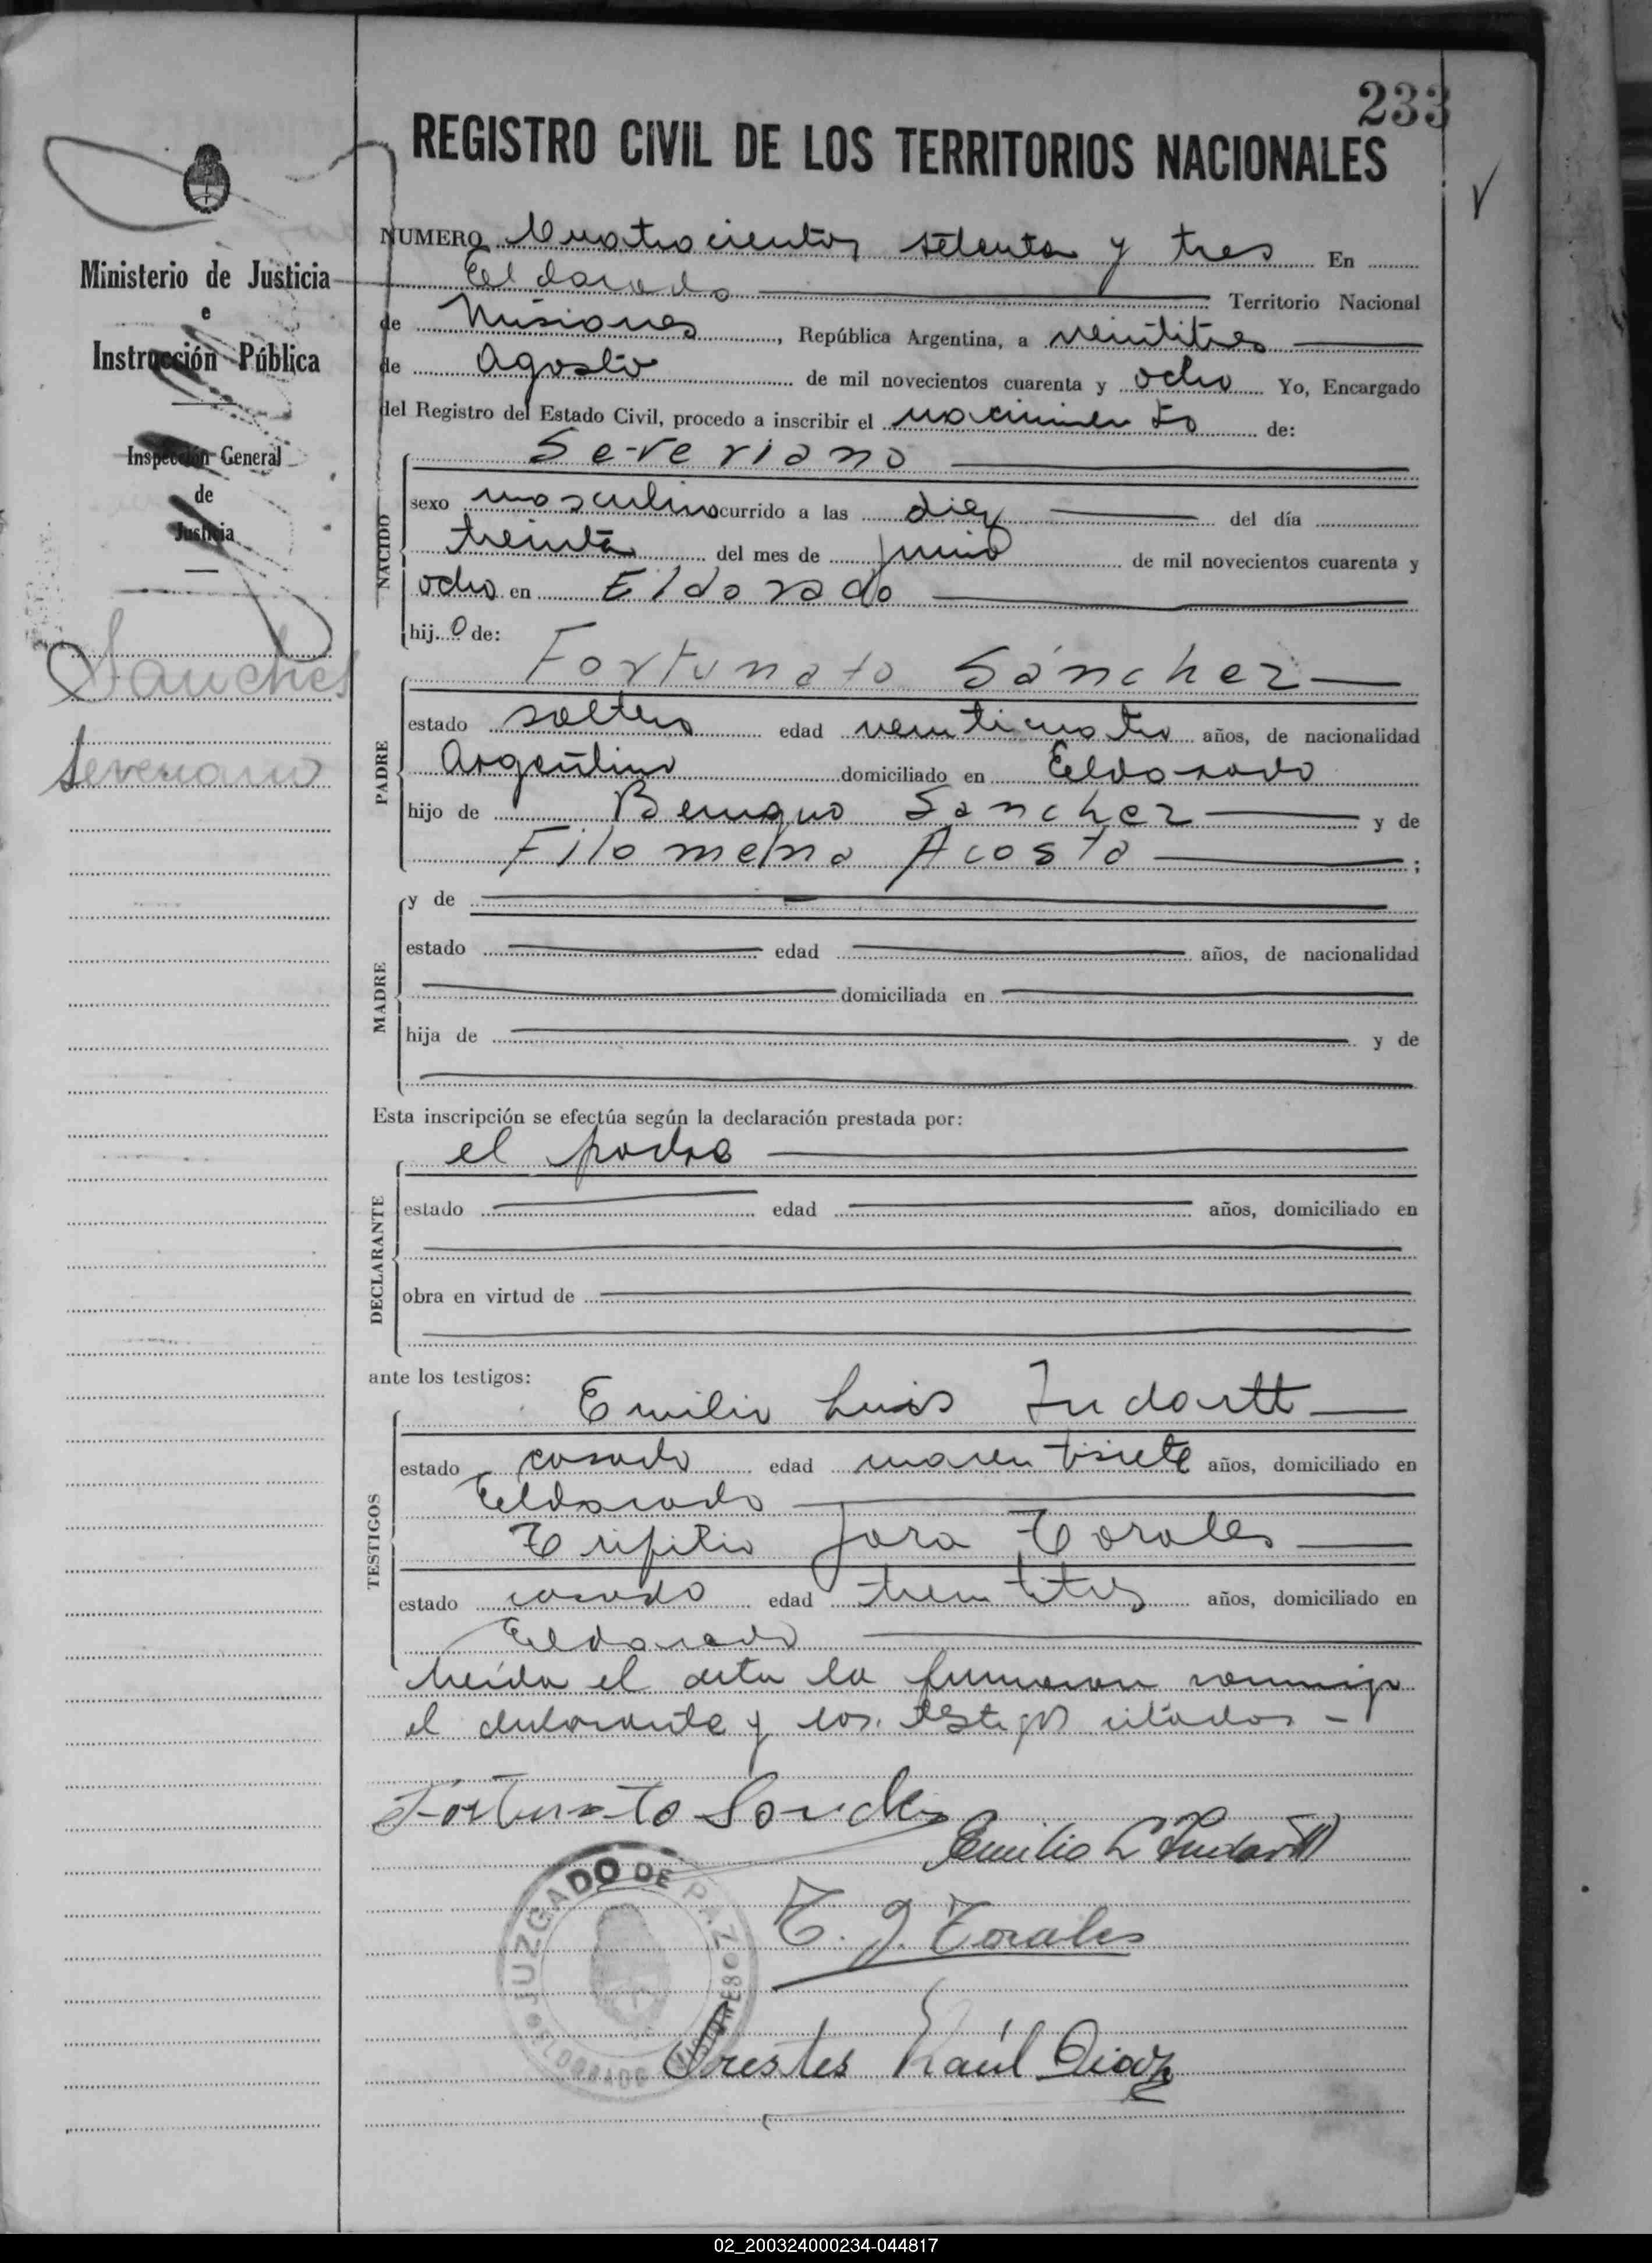 233
REGISTRO CIVIL DE LOS TERRITORIOS NACIONALES
Ministerio de Justicia
e
Instrucción Pública
Inspección General
de
Justicia
Sanchez
Severiano
NUMERO Cuatrocientos setenta y tres En
Eldorado Territorio Nacional
de Misiones, República Argentina, a veintitres
de Agosto de mil novecientos cuarenta y ocho Yo, Encargado
del Registro del Estado Civil, procedo a inscribir el nacimiento de:
NACIDO
Severiano
sexo masculino ocurrido a las diez del día
treinta del mes de junio de mil novecientos cuarenta y
ocho en Eldorado
hij.o de:
PADRE
Fortunato Sánchez
estado soltero edad veinticuatro años, de nacionalidad
Argentino domiciliado en Eldorado
hijo de Benigno Sanchez y de
Filomena Acosta ;
MADRE
y de
estado edad años, de nacionalidad
domiciliada en
hija de y de
Esta inscripción se efectúa según la declaración prestada por:
DECLARANTE
el padre
estado edad años, domiciliado en
obra en virtud de
ante los testigos:
TESTIGOS
Emilio Luis Indartt
estado casado edad años, domiciliado en
Eldorado
Jara Torales
estado casado edad treintitres años, domiciliado en
Eldorado
Leída el acta la firmaron conmigo
el declarante y los testigos citados -
Fortunato Sanchez
Emilio L Indartt
T. J. Torales
JUZGADO DE PAZ
ELDORADO MISIONES
Orestes Raúl Diaz
02_200324000234-044817